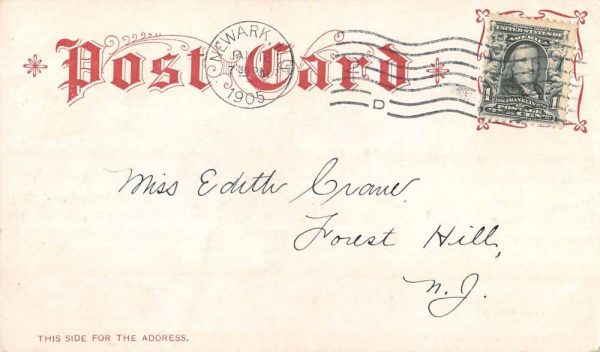 Post Card
NEWARK, N.J.
JAN
7 PM
1905
D
UNITED STATES OF AMERICA
FRANKLIN
POSTAGE
1 ONE CENT 1
Miss Edith Crane.
Forest Hill,
N. J.
THIS SIDE FOR THE ADDRESS.